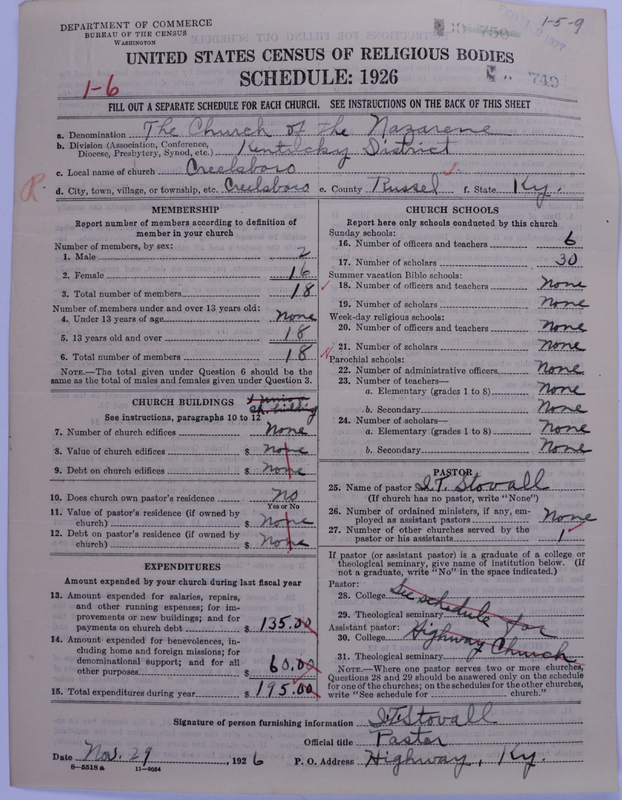 DEPARTMENT OF COMMERCE
BUREAU OF THE CENSUS
WASHINGTON
1-5-9
750
749
UNITED STATES CENSUS OF RELIGIOUS BODIES
SCHEDULE: 1926
1-6
FILL OUT A SEPARATE SCHEDULE FOR EACH CHURCH. SEE INSTRUCTIONS ON THE BACK OF THIS SHEET
a. Denomination The Church of the Nazarene
b. Division (Association, Conference, Diocese, Presbytery, Synod, etc.) Kentucky District
c. Local name of church Creelsboro
R. d. City, town, village, or township, etc. Creelsboro e. County Russel f. State Ky.
MEMBERSHIP
Report number of members according to definition of
member in your church
Number of members, by sex:
1. Male 2
2. Female 16
3. Total number of members 18
Number of members under and over 13 years old:
4. Under 13 years of age None
5. 13 years old and over 18
6. Total number of members 18
NOTE.—The total given under Question 6 should be
same as the total of males and females given under Question 3.
CHURCH BUILDINGS
See instructions, paragraphs 10 to 12
7. Number of church edifices None
8. Value of church edifices $ None
9. Debt on church edifices $ None
10. Does church own pastor's residence No
Yes or No
11. Value of pastor's residence (if owned by
church) $ None
12. Debt on pastor's residence (if owned by
church) $ None
EXPENDITURES
Amount expended by your church during last fiscal year
13. Amount expended for salaries, repairs,
and other running expenses; for im-
provements or new buildings; and for
payments on church debt $ 135.00
14. Amount expended for benevolences, in-
cluding home and foreign missions; for
denominational support; and for all
other purposes $ 60.00
15. Total expenditures during year $ 195.00
CHURCH SCHOOLS
Report here only schools conducted by this church
Sunday schools:
16. Number of officers and teachers 6
17. Number of scholars 30
Summer vacation Bible schools:
18. Number of officers and teachers None
19. Number of scholars None
Week-day religious schools:
20. Number of officers and teachers None
21. Number of scholars None
Parochial schools:
22. Number of administrative officers None
23. Number of teachers—
a. Elementary (grades 1 to 8) None
b. Secondary None
24. Number of scholars—
a. Elementary (grades 1 to 8) None
b. Secondary None
PASTOR
25. Name of pastor I.T. Stovall
(If church has no pastor, write "None")
26. Number of ordained ministers, if any, em-
ployed as assistant pastors None
27. Number of other churches served by the
pastor or his assistants 1
If pastor (or assistant pastor) is a graduate of a college or
theological seminary, give name of institution below. (If
not a graduate, write "No" in the space indicated.)
Pastor:
28. College See schedule for
29. Theological seminary
Assistant pastor:
30. College Highway Church
31. Theological seminary
NOTE.—Where one pastor serves two or more churches,
Questions 28 and 29 should be answered only on the schedule
for one of the churches; on the schedules for the other churches,
write "See schedule for church."
Signature of person furnishing information I.T. Stovall
Official title Pastor
Date Nov. 29, 1926 P. O. Address Highway, Ky.
8-5518a 11-9064